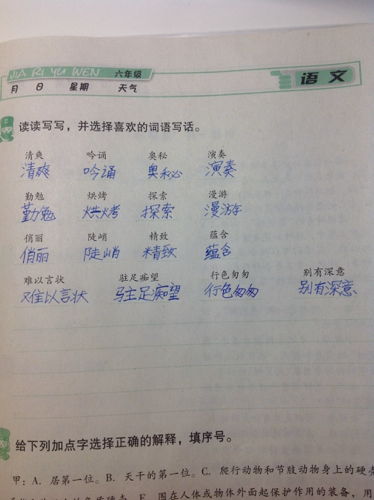 JIA RI YU WEN 六年级
月 日 星期 天气
语文
读读写写，并选择喜欢的词语写话。
清爽 吟诵 奥秘 演奏
清爽 吟诵 奥秘 演奏
勤勉 烘烤 探索 漫游
勤勉 烘烤 探索 漫游
俏丽 陡峭 精致 蕴含
俏丽 陡峭 精致 蕴含
难以言状 驻足痴望 行色匆匆 别有深意
难以言状 驻足痴望 行色匆匆 别有深意
给下列加点字选择正确的解释，填序号。
甲：A. 居第一位。B. 天干的第一位。C. 爬行动和节肢动物身上的硬
E. 围在人体或物体外面起保护作用的装备，用